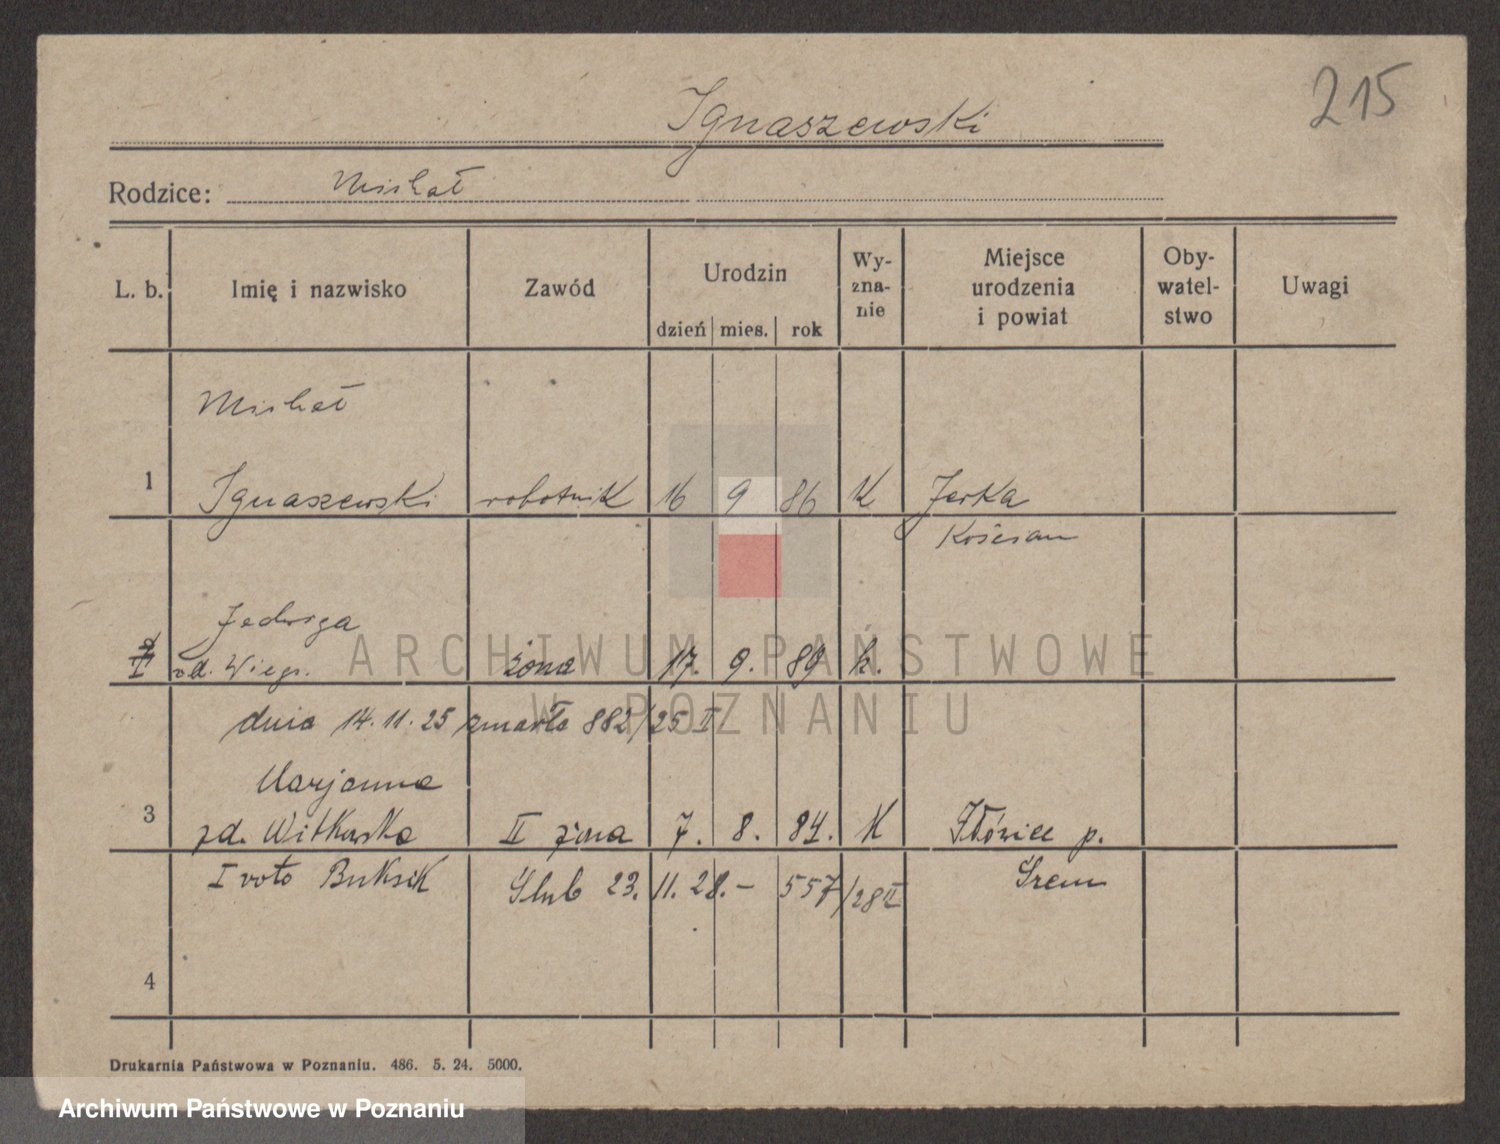 215
Ignaszewski
Rodzice: Michał
L. b. Imię i nazwisko Zawód Urodzin dzień mies. rok Wy-zna-nie Miejsce urodzenia i powiat Oby-watel-stwo Uwagi
Michał
1 Ignaszewski robotnik 16 9 86 K Jerka
Kościan
Jedwiga
2 I zd. Wiegr. żona 17. 9. 89 k.
ARCHIWUM PAŃSTWOWE
W POZNANIU
dnia 14.11.25 zmarła 882/25 I
Marjanna
3 zd. Witkowska II żona 7. 8. 84. K p.
I voto Buksik Ślub 23. 11. 28.- 557/28 II Śrem
4
Drukarnia Państwowa w Poznaniu. 486. 5. 24. 5000.
Archiwum Państwowe w Poznaniu